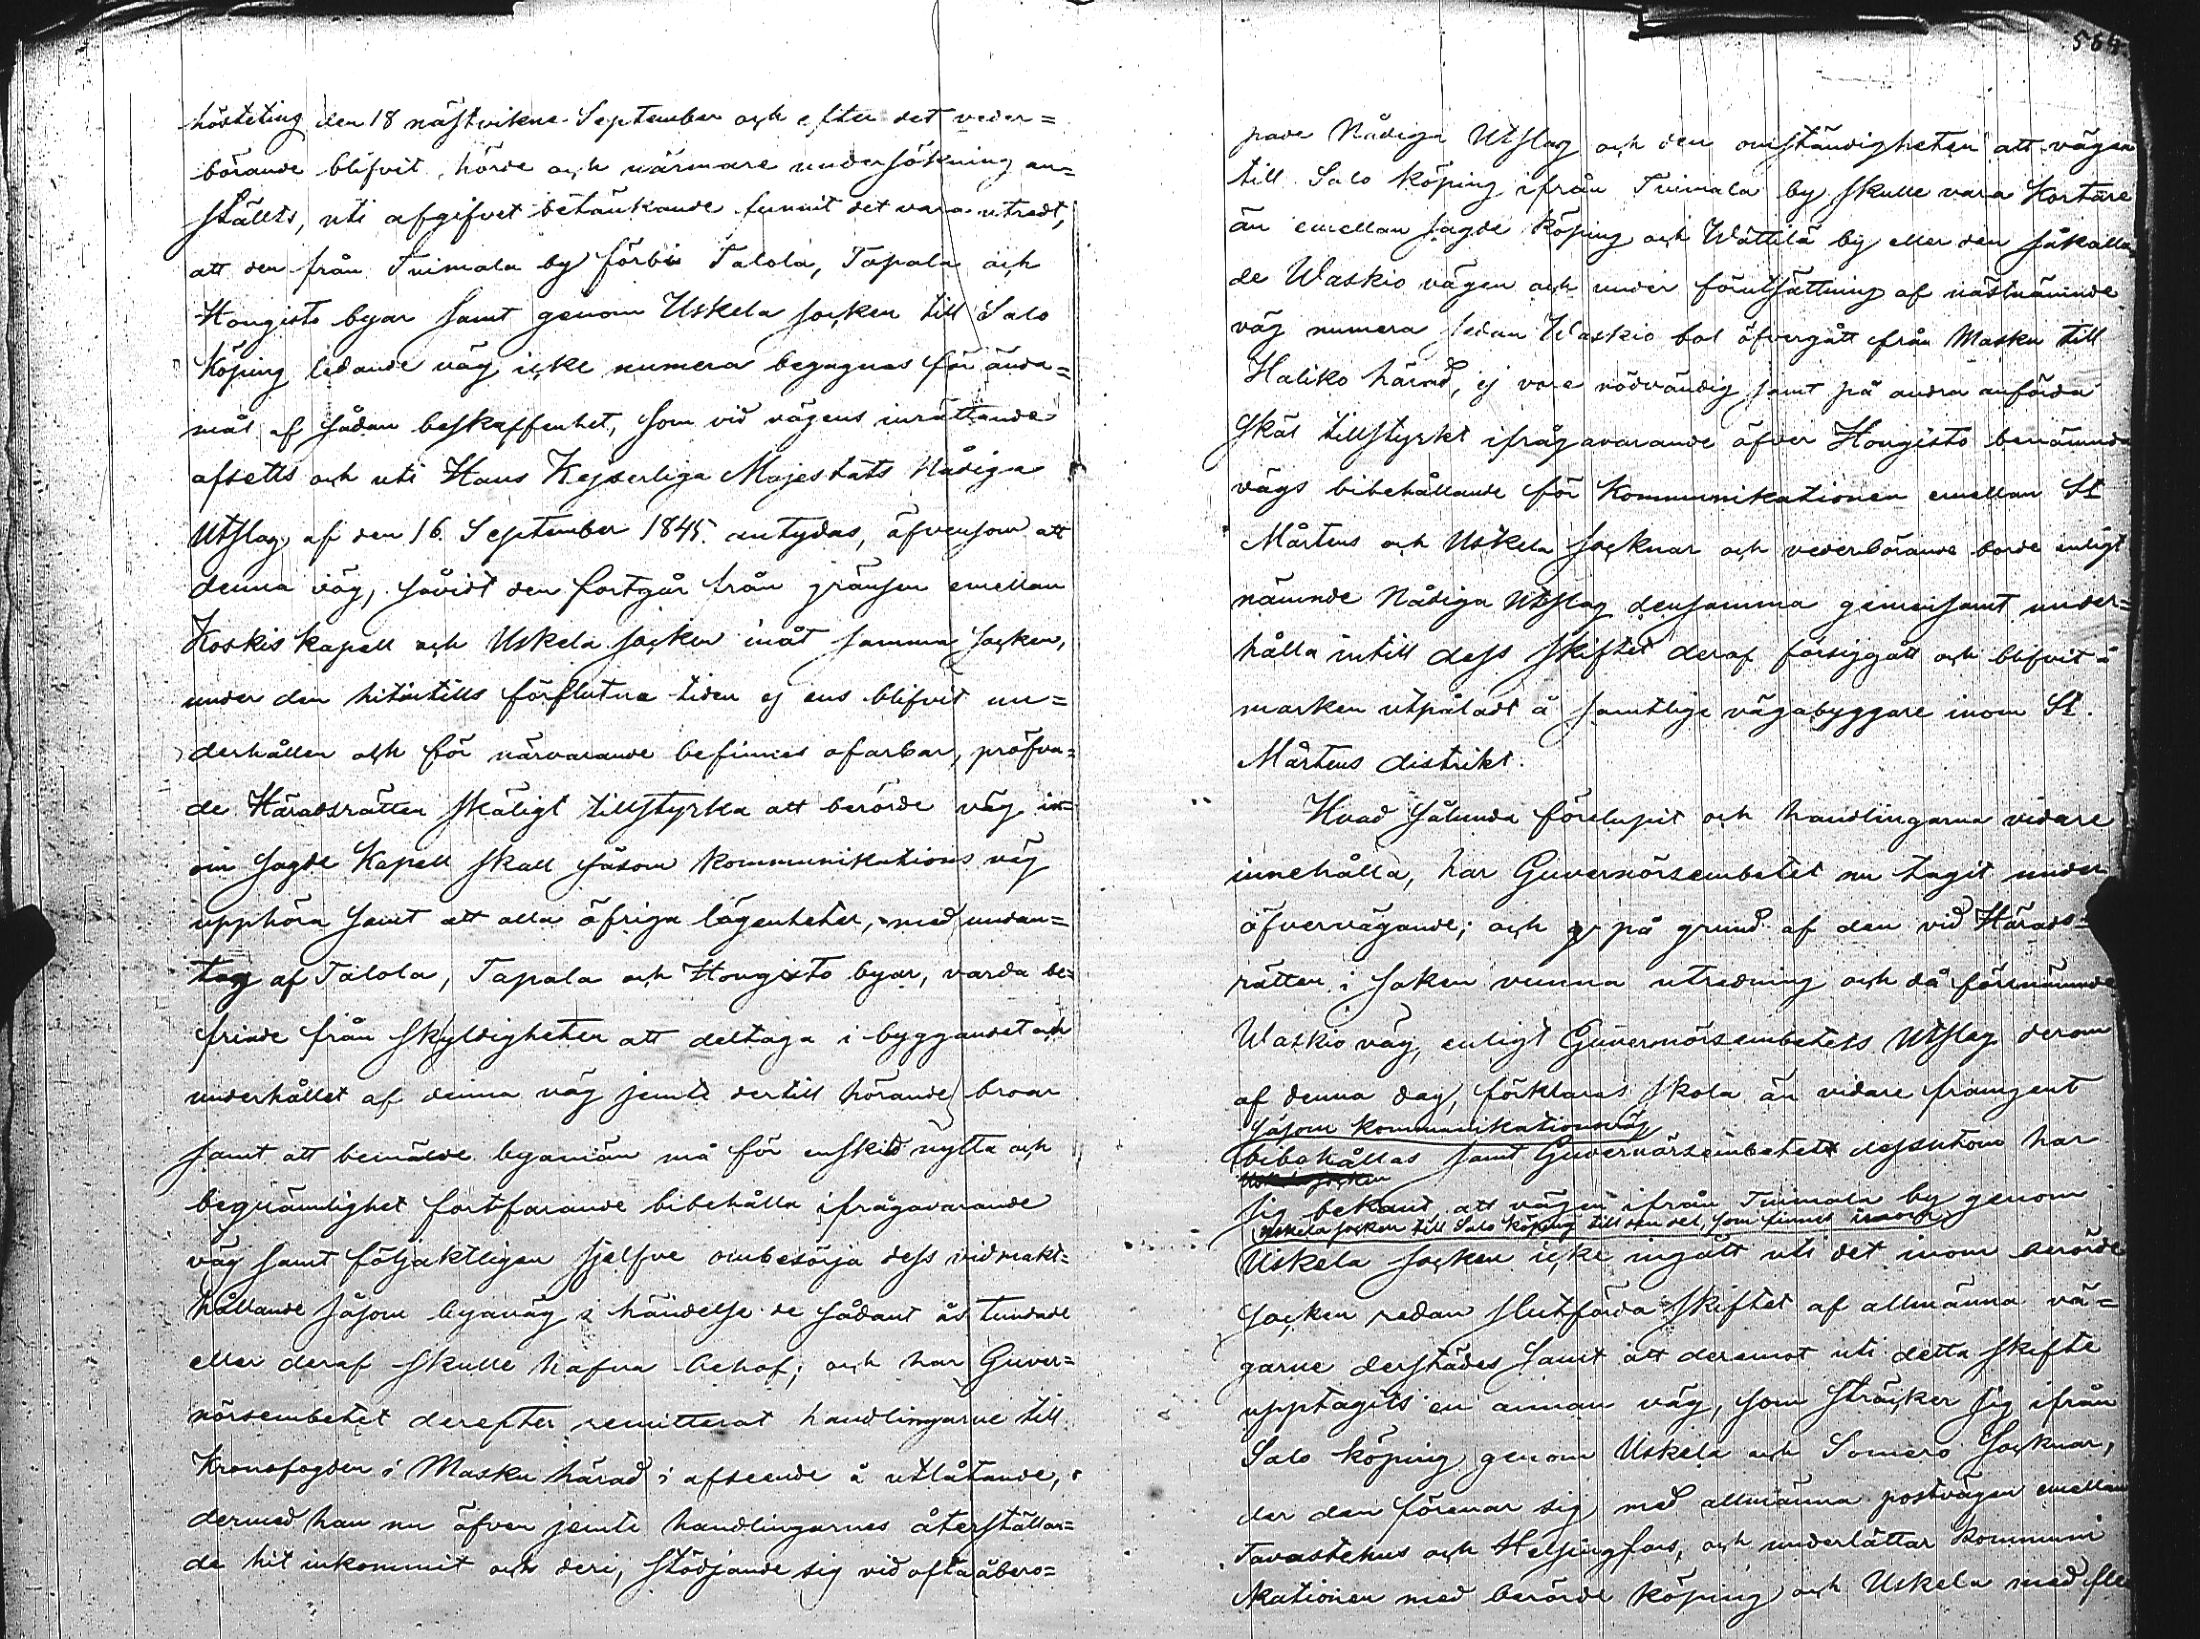 hösteting den 18 nästvikne September och efter det veder=
börande blifvit hörde och närmare undersökning an=
ställts, uti afgifvet betänkande funnit det vara utredt,
att den från Tuimala by förbi Talola, Tapala och
Hongisto byar samt genom Uskela socken till Salo
Köping ledande väg icke numera begagnas för ända=
mål af sådan beskaffenhet, som vid vägens inrättande
afsetts och uti Hans Kejserliga Majestäts Nådiga
Utslag af den 16. September 1845. antydas, äfvensom att
denna väg, såvidt den fortgår från gränsen emellan
Koskis kapell och Uskela socken inåt samma socken,
under den hitintills förflutna tiden ej ens blifvit un=
derhållen och för närvarande befinnes ofarbar, pröfva=
de Häradsrätten skäligt tillstyrka att berörde väg in=
om sagde Kapell skall såsom kommunikations väg
upphöra samt att alla öfriga lägenheter, med undan=
tag af Talola, Tapala och Hongisto byar, varda be=
friade från skyldigheten att deltaga i byggandet och
underhållet af denna väg jemte dertill hörande broar
samt att bemälde byamän må för enskild nytta och
beqvämlighet fortfarande bibehålla ifrågavarande
väg samt följaktligen sjelfve ombesörja dess vidmakt=
hållande såsom byaväg i händelse de sådant åstundade
eller deraf skulle hafva behof; och har Guver=
nörsembetet derefter remitterat handlingarne till
Kronofogden i Masku härad i afseende å utlåtande,
dermed han nu äfven jemte handlingarnes återställan=
de hit inkommit och deri, stödjande sig vid ofta åbero=
564.
pade Nådiga Utslag och den omständigheten att vägen
till Salo köping ifrån Tuimala by skulle vara kortare
än emellan sagde köping och Wättilä by eller den såkalla
de Waskio vägen och under förutsättning af nästnämnde
väg numera sedan Waskio bol öfvergått från Masku till
Haliko härad, ej vore nödvändig samt på andra anförda
skäl tillstyrkt ifrågavarande öfver Hongisto benämnda
vägs bibehållande för kommunikationen emellan St
Mårtens och Uskela socknar och vederbörande borde enligt
nämnde Nådiga Utslag densamma gemensamt under=
hålla intill dess skiftet deraf försiggått och blifvit å
marken utpåladt å samtlige vägabyggare inom St.
Mårtens distrikt.
Hvad sålunda förelupit och handlingarna vidare
innehålla, har Guvernörsembetet nu tagit under
öfvervägande; och på grund af den vid Härads=
rätten i saken vunna utredning och då förenämnde
Waskio väg, enligt Guvernörsembetets Utslag derom
af denna dag, förklaras skola än vidare framgent
såsom kommunikationsväg
bibehållas samt Guvernörsembetet dessutom har
sig bekant, att vägen ifrån Tuimala by genom
Uskela socken till Salo köping till den del, som finnes inom
Uskela socken icke ingått uti det inom berörde
socken redan slutförda skiftet af allmänna vä=
garne derstädes samt att deremot uti detta skifte
upptagits en annan väg, som sträcker sig ifrån
Salo köping genom Uskela och Somero Socknar,
der den förenar sig med allmänna postvägen emellan
Tavastehus och Helsingfors, och underlättar kommuni
kationen med berörde köping och Uskela med fle